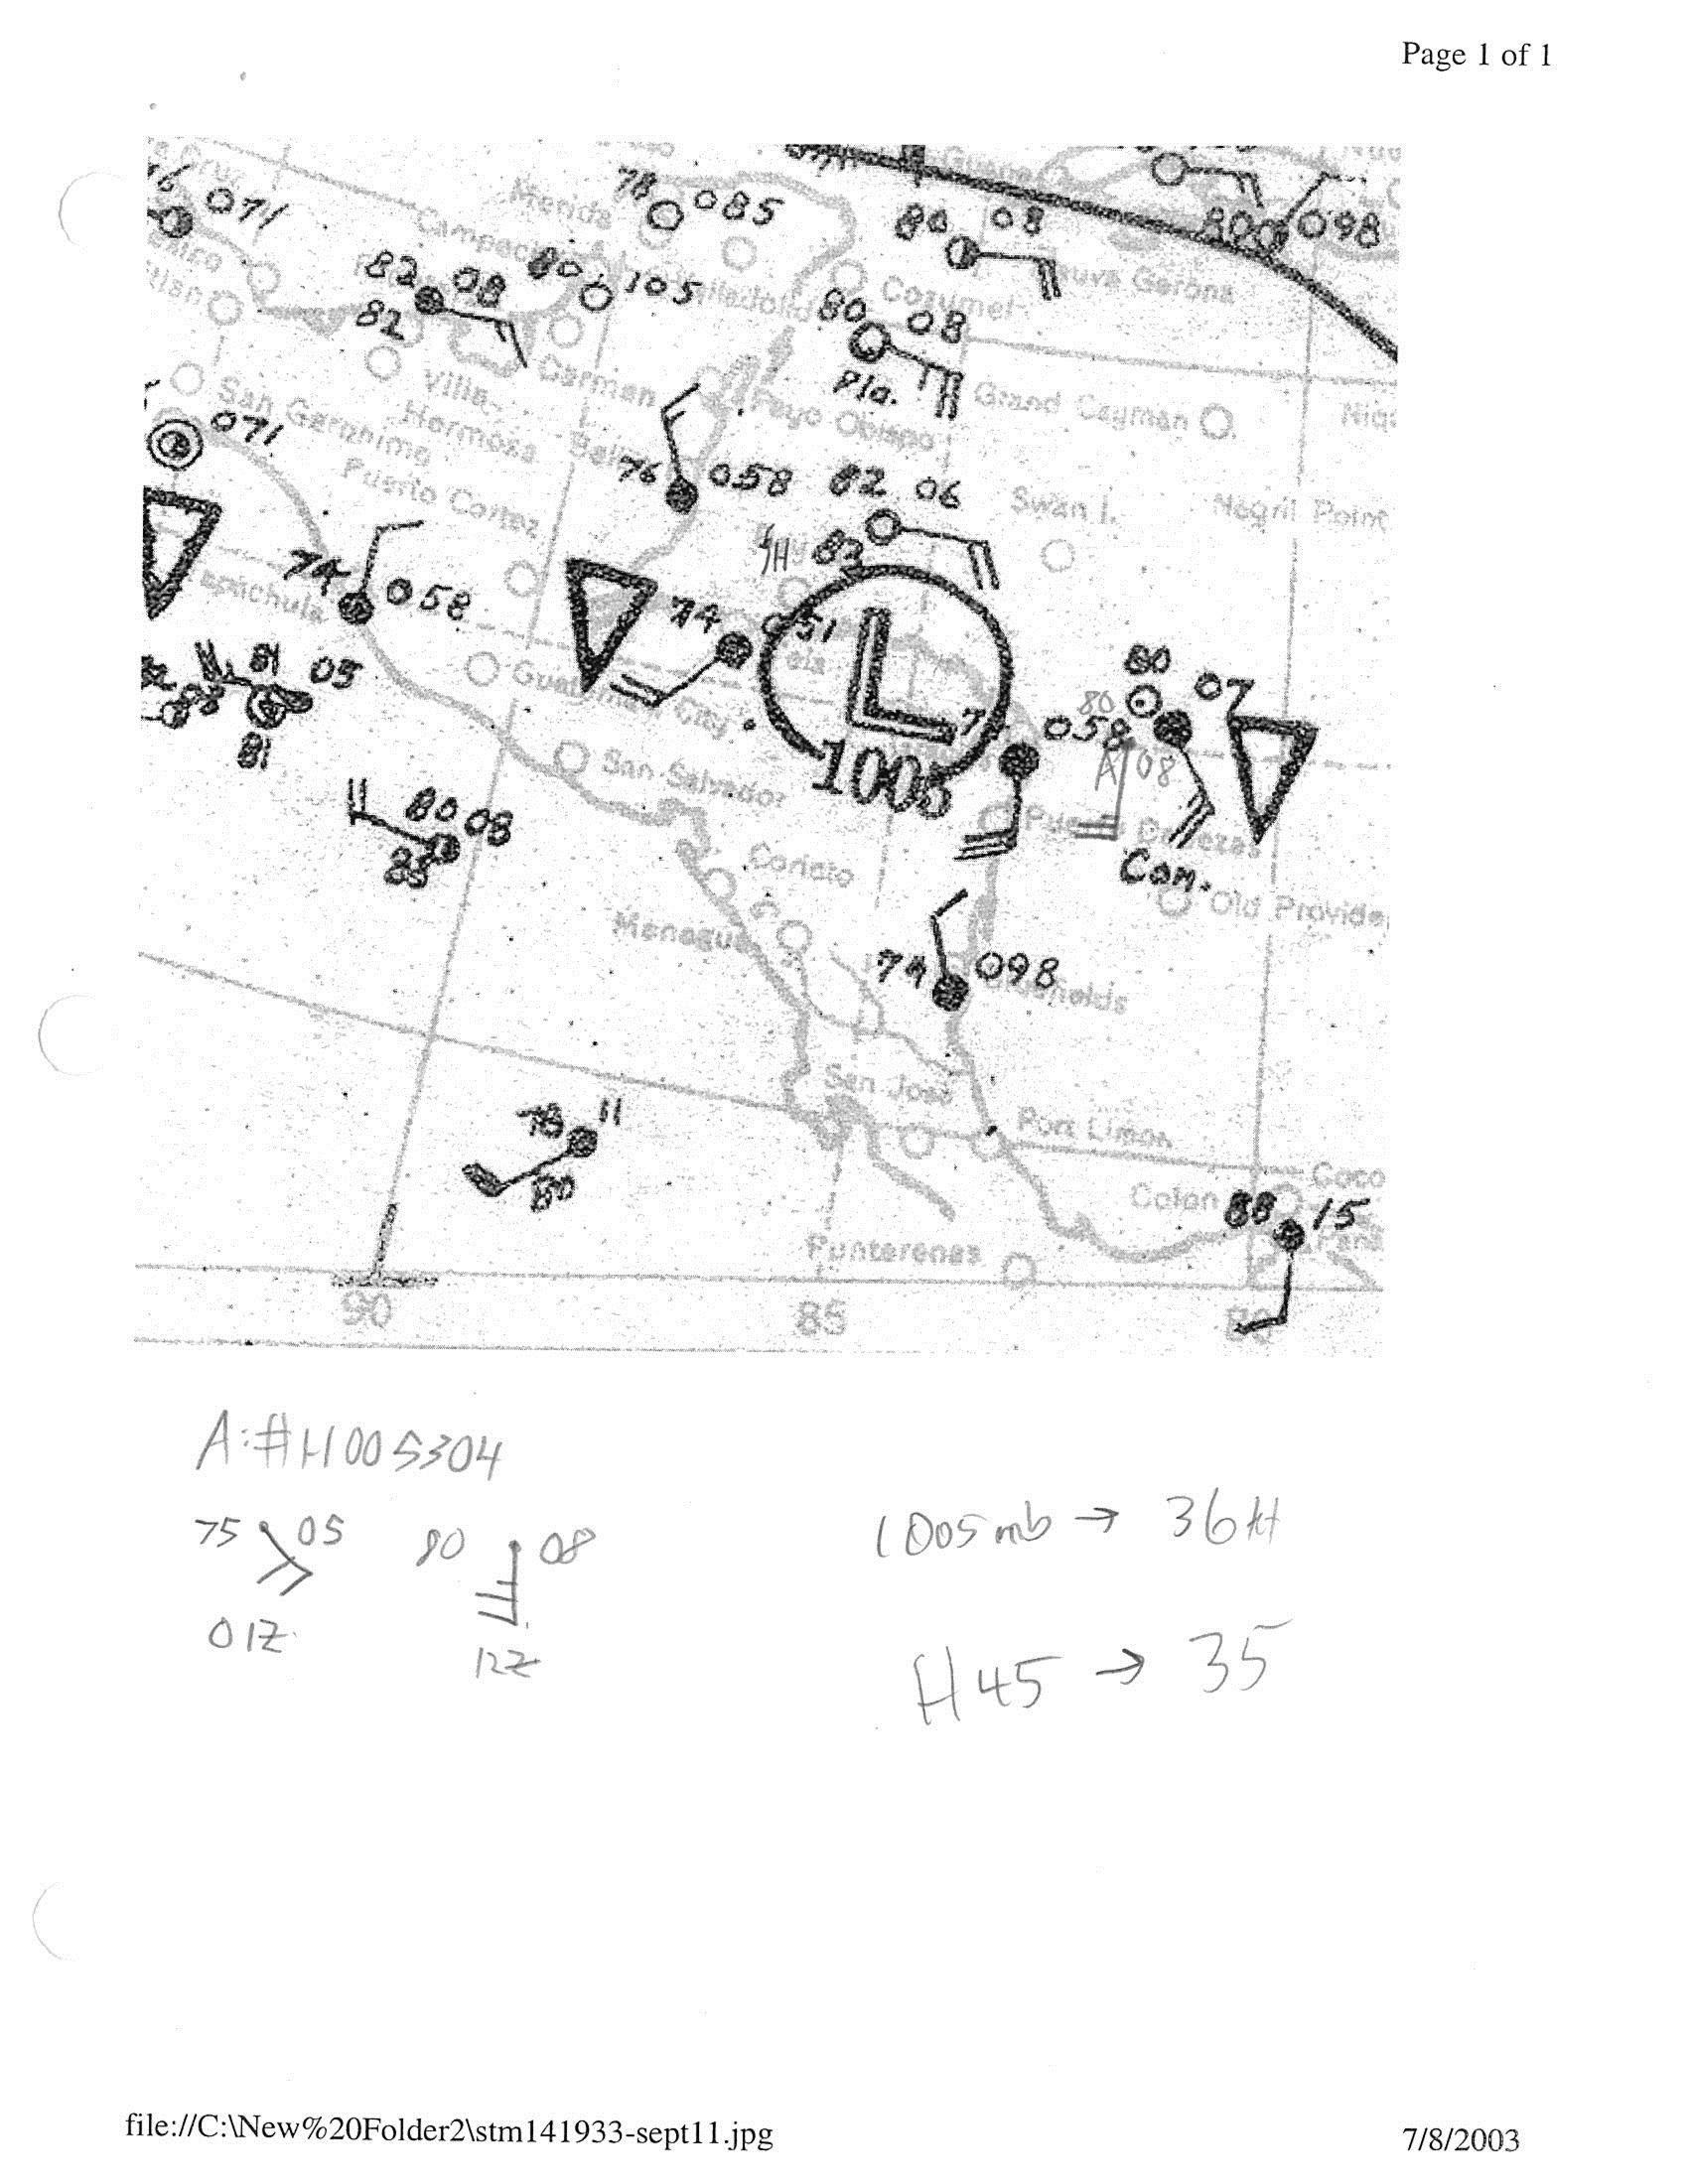 Page 1 of 1
071
Merida
78 085
80 08
800 098
Campech
82 08
80 105
Cozumel
Nueva Gerona
82
80 08
Pla.
Carmen
Villa
Hermosa
San Geronimo
071
Payo Obispo
Grand Cayman
Niq
Puerto Cortez
76 058
82 06
Swan I.
Negril Point
SH 83
74 058
apachula
74 051
L
1005
81 05
81
Guatemala City
80
80 07
058
A 08
San Salvador
80 08
Puerto Cabezas
Com.
Corinto
Old Provide
Managua
74 098
Bluefields
San Jose
Port Limon
78 11
80
Coco
Colon
88 15
Punterenas
90 85 80
A:#H005304
75 05 80 08
01Z 12Z
1005mb → 36kt
H45 → 35
file://C:\New%20Folder2\stm141933-sept11.jpg 7/8/2003